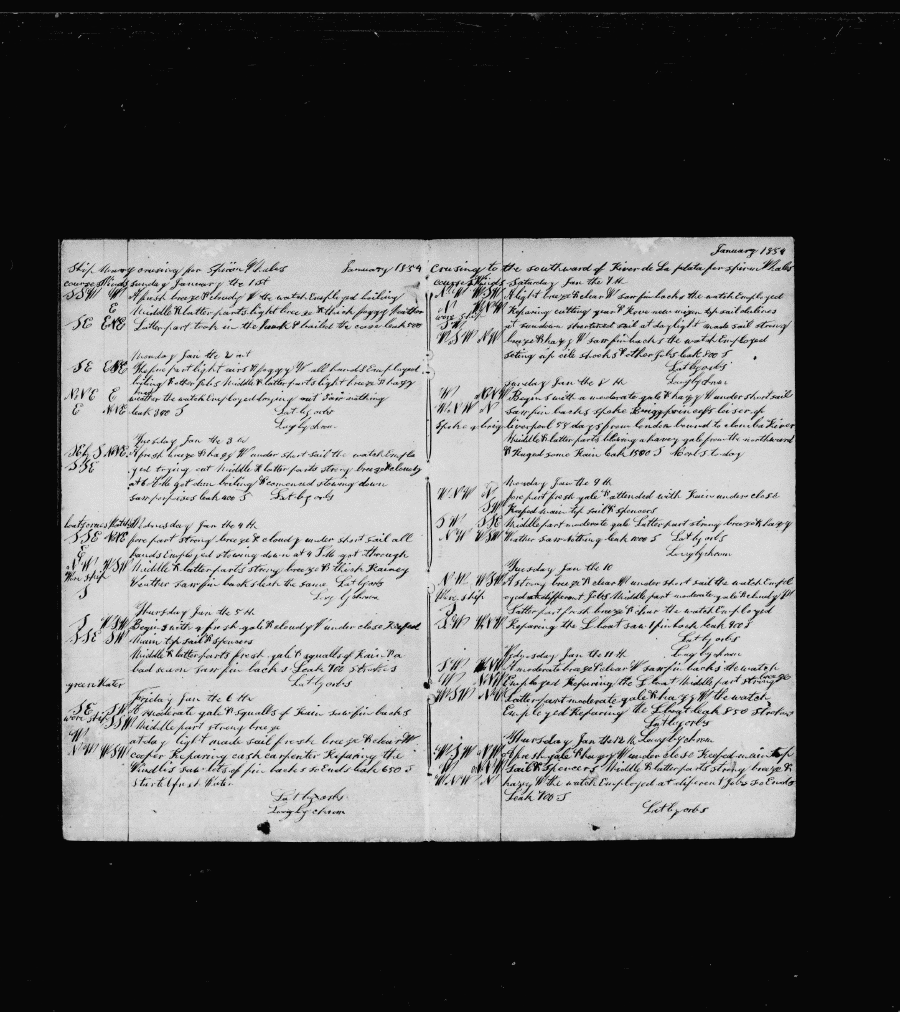 Ship Henry crusing for Sperm Whales January 1854
courses Winds Sunday January the 1st
SSW W A fresh breeze & cloudy W the watch Employed boiling
E Middle & latter parts light breeze & thick foggy Weather
SE ENE Latter part took in the & bailed the case leak 800
Monday Jan the 2 nd
SE ENE The fore part light airs & foggy W all hands Employed
boiling & other jobs Middle & latter parts light breeze & hazy
NNE E weather the watch Employed saw nothing
E NNE leak 300 S Lat by obs
Long by chron
Tuesday Jan the 3 d
S NNE A fresh breeze & hazy W under short sail the watch Emplo
SSE yed trying out Middle & latter parts strong breeze & cloudy
at 6 PM got done boiling & comenced stowing down
saw porpoises leak 400 S Lat by obs
courses Winds Wednesday Jan the 4 th
SSE NNE fore part strong breeze & cloudy under short sail all
E hands Employed stowing down at 4 PM got through
NW WSW Middle & latter parts strong breeze & thick Rainey
Wore ship Weather saw finbacks leak the same Lat by obs
S Long by chron
Thursday Jan the 5 th
S WSW Begins with a fresh gale & cloudy W under close Reefed
SSE SW Main top sail & spencers
Middle & latter parts fresh gale & squalls of Rain & a
bad sea on saw finbacks Leak 700 Strokes
green Water Lat by obs
Friday Jan the 6 th
SE SW A Moderate gale & squalls of Rain saw finbacks
wore ship SSW Middle part strong breeze
W at day light made sail fresh breeze & clear W
NW WSW cooper Repairing cask carpenter Repairing the
Windlis saw lots of finbacks so Ends leak 650 S
started fresh Water
Lat by obs
Long by chron
January 1854
Crusing to the southward of River de La plata for sperm Whales
courses Winds Saturday Jan the 7 th
NW WSW A light breeze & clear W saw finbacks the watch Employed
N WNW Repairing cutting gear & Hove new mizen top sail clulines
wore ship
SW at sundown shortened sail at daylight made sail strong
WSW NW breeze & hazy W saw finbacks the watch Employed
seting up oile shooks & other jobs leak 800 S
Lat by obs
Long by chron
Sunday Jan the 8 th
W NNW Begins with a moderate gale & hazy W under short sail
WNW N saw finbacks spoke Brigg princess luiser of
Spoke a brig liverpool 58 days from london bound to River
Middle & latter parts blowing a heavy gale from the northward
& Raged some Rain leak 1500 S to day
Monday Jan the 9 th
WNW N fore part fresh gale & attended with Rain under close
SW Reefed main top sail & spencers
SW SSE Middle part moderate gale Latter part strong breeze & hazy
NW WSW Weather saw nothing leak 1000 S Lat by obs
Long by chron
Tuesday Jan the 10
NW WSW A strong breeze & clear W under short sail the watch Empl
Wore ship oyed at different Jobs Middle part moderate gale & cloudy W
S Latter part fresh breeze & clear the watch Employed
SW WNW Repairing the L boat saw 1 finback leak 900 S
Lat by obs
Long by chron
Wednesday Jan the 11 th
SW WNW A moderate breeze & clear W saw finbacks the watch
W NNW Employed Repairing the L boat Middle part strong breeze
WSW NW Latter part moderate gale & hazy W the watch
Employed Repairing the L boat leak 850 Strokes
Lat by obs
Thursday Jan the 12 th Long by chron
WSW NW A fresh gale & hazy W under close Reefed main top
W NNW sail & spencers Middle & latter parts strong breeze &
WNW N hazy W the watch Employed at diferent Jobs so Ends
Leak 700 S
Lat by obs